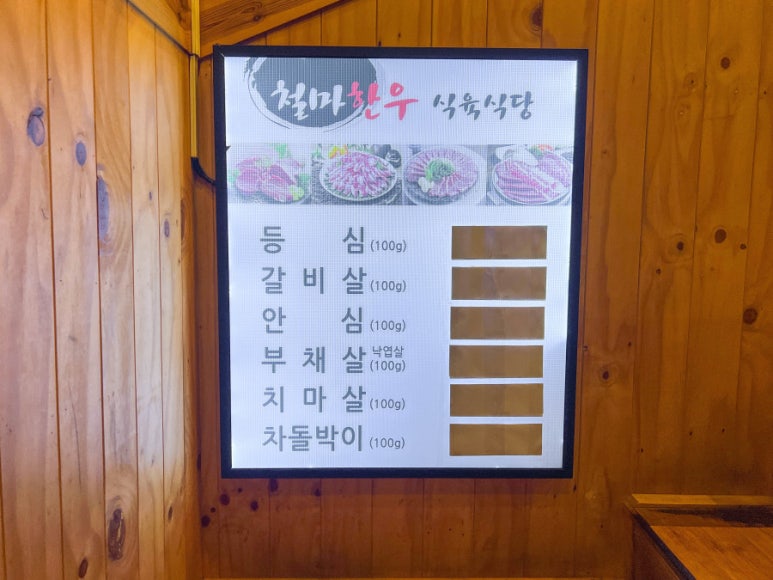 철마한우 식육식당
등 심 (100g)
갈 비 살 (100g)
안 심 (100g)
부 채 살 낙엽살 (100g)
치 마 살 (100g)
차돌박이 (100g)